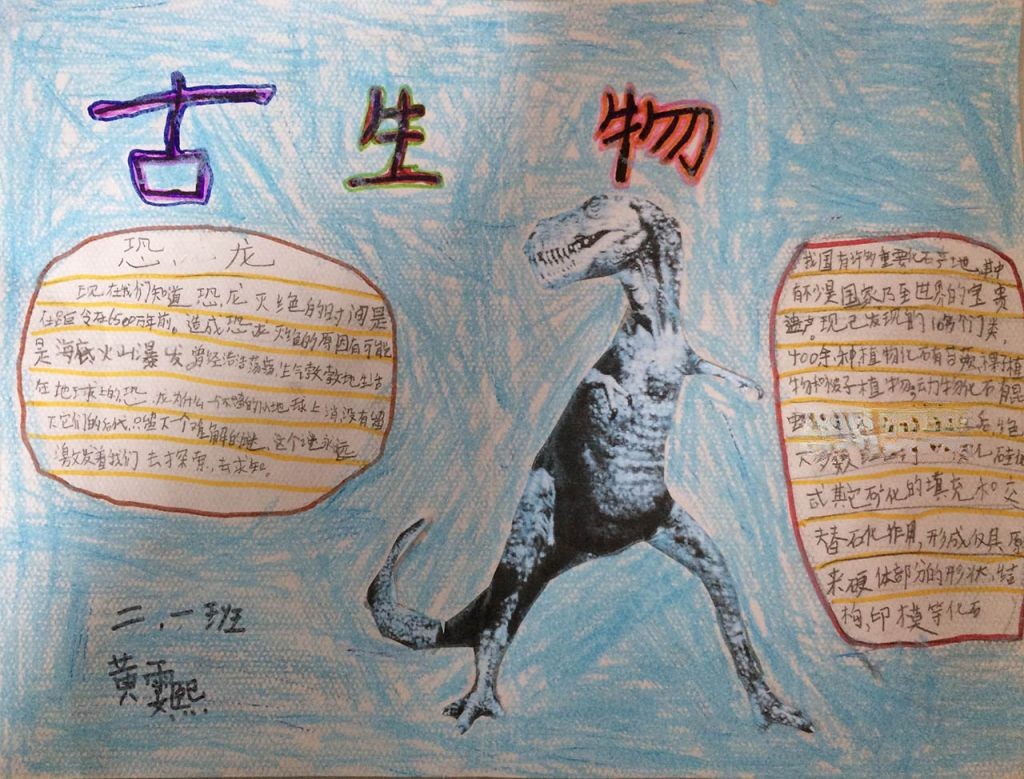 古生物
恐龙
现在我们知道恐龙灭绝的时间是
在距今6500万年前。造成恐龙灭绝的原因有可能
是海底火山瀑发。曾经浩浩荡荡,生气勃勃地生活
在地球上的恐龙为什么一个不留的从地球上消没有
大它们的后代,只留大一个难解的谜,这个谜永远
激发着我们去才探索,去求知。
我国有许多重要化石产地,其中
有不少是国家乃至世界的宝贵
遗产现已发现的门类,
400余种植物化石有苔藓,蕨子植
物和被子植物。动物化石有昆
虫
大多数
或其它矿化的填充和交
替石化作用,形成仅具原
来硬体部分的形状,结
构,印模等化石
二.一班
黄雯熙